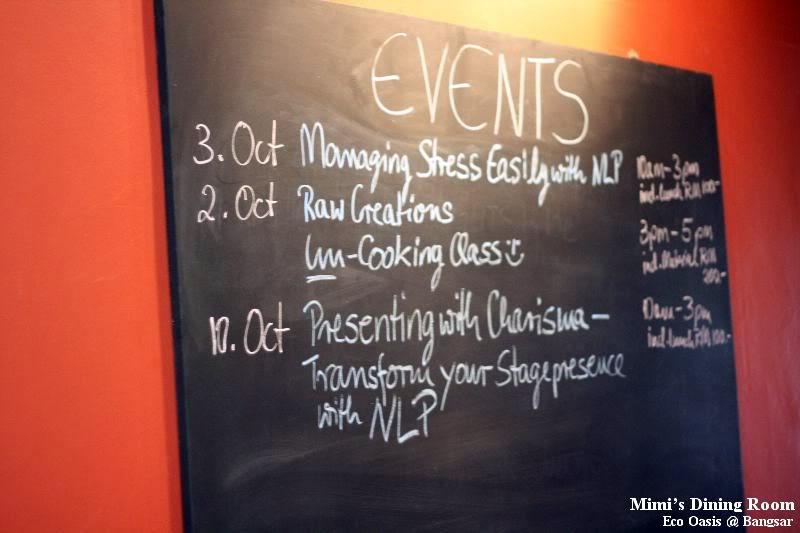 EVENTS
3. Oct Managing Stress Easily with NLP 10am - 3pm
incl. Lunch RM 100.-
2. Oct Raw Creations 3pm - 5pm
Un-Cooking Class incl. Material RM
200.-
10. Oct Presenting with Charisma - 10am - 3pm
incl. Lunch RM 100.-
Transform your Stagepresence
with NLP
Mimi's Dining Room
Eco Oasis @ Bangsar